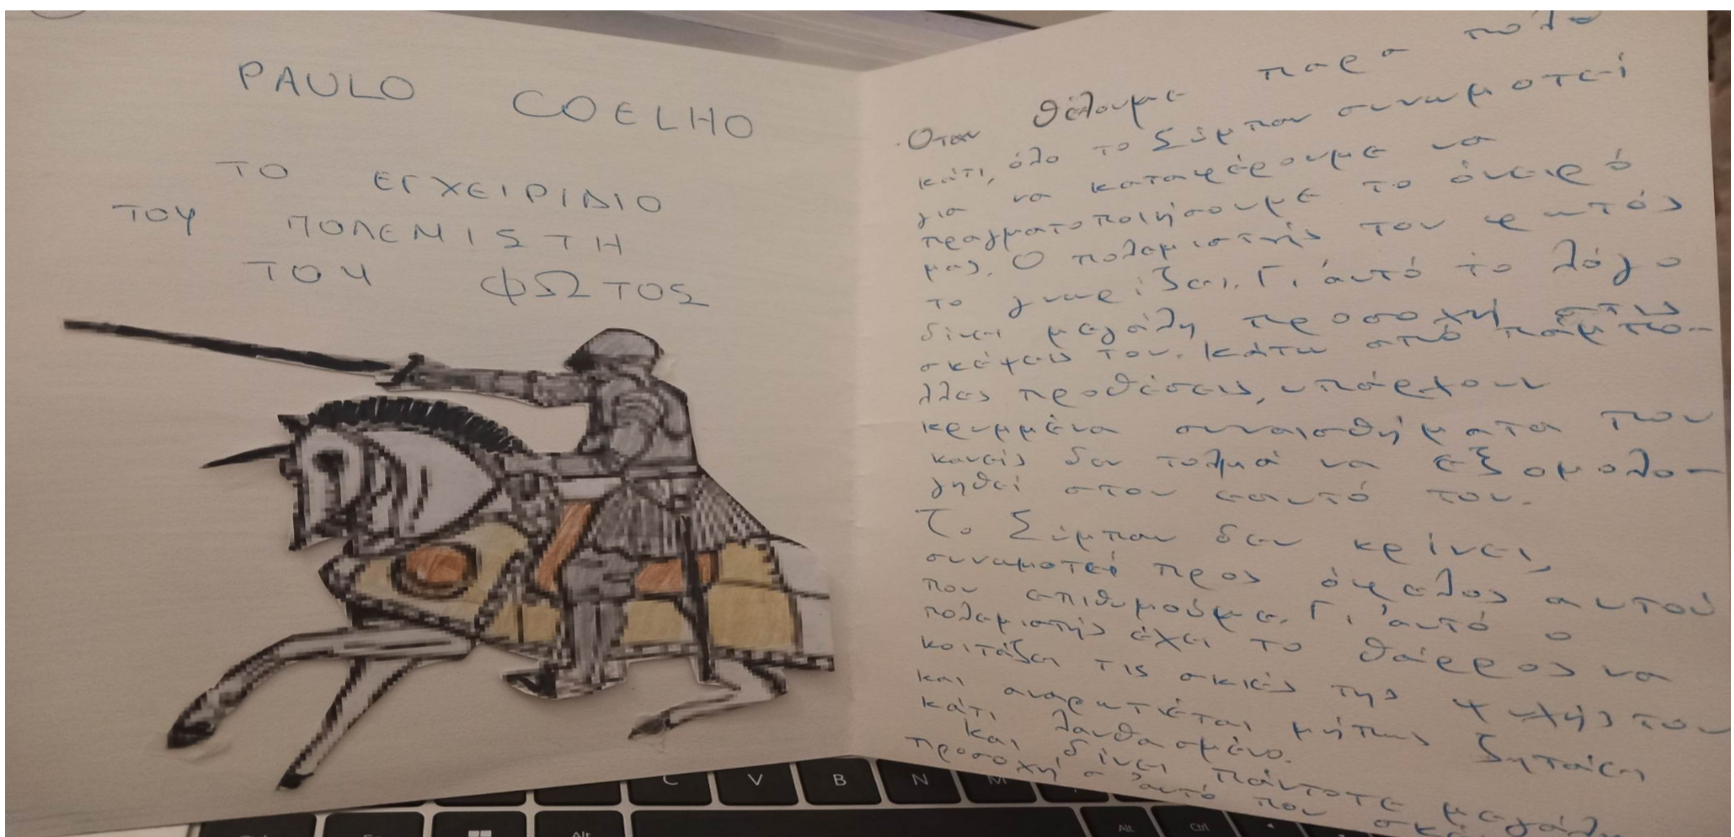 PAULO COELHO
ΤΟ ΕΓΧΕΙΡΙΔΙΟ
ΤΟΥ ΠΟΛΕΜΙΣΤΗ
ΤΟΥ ΦΩΤΟΣ
Οταν θέλουμε παρα πολύ
κάτι, όλο το Σύμπαν συνωμοτεί
για να καταφέρουμε να
πραγματοποιήσουμε το όνειρό
μας. Ο πολεμιστής του φωτός
το γνωρίζει. Γι' αυτό το λόγο
δίνει μεγάλη προσοχή στις
σκέψεις του. Κάτω από πάμπο-
λλες προθέσεις, υπάρχουν
κρυμμένα συναισθήματα που
κανείς δεν τολμά να εξομολο-
γηθεί στον εαυτό του.
Το Σύμπαν δεν κρίνει,
συνωμοτεί προς όφελος αυτού
που επιθυμούμε. Γι' αυτό ο
πολεμιστής έχει το θάρρος να
κοιτάζει τις σκιές της ψυχής του
και αναρωτιέται μήπως ζητάει
κάτι λανθασμένο.
και δίνει πάντοτε μεγάλη
προσοχή σ' αυτό που
C V B N M
Alt Alt Ctrl